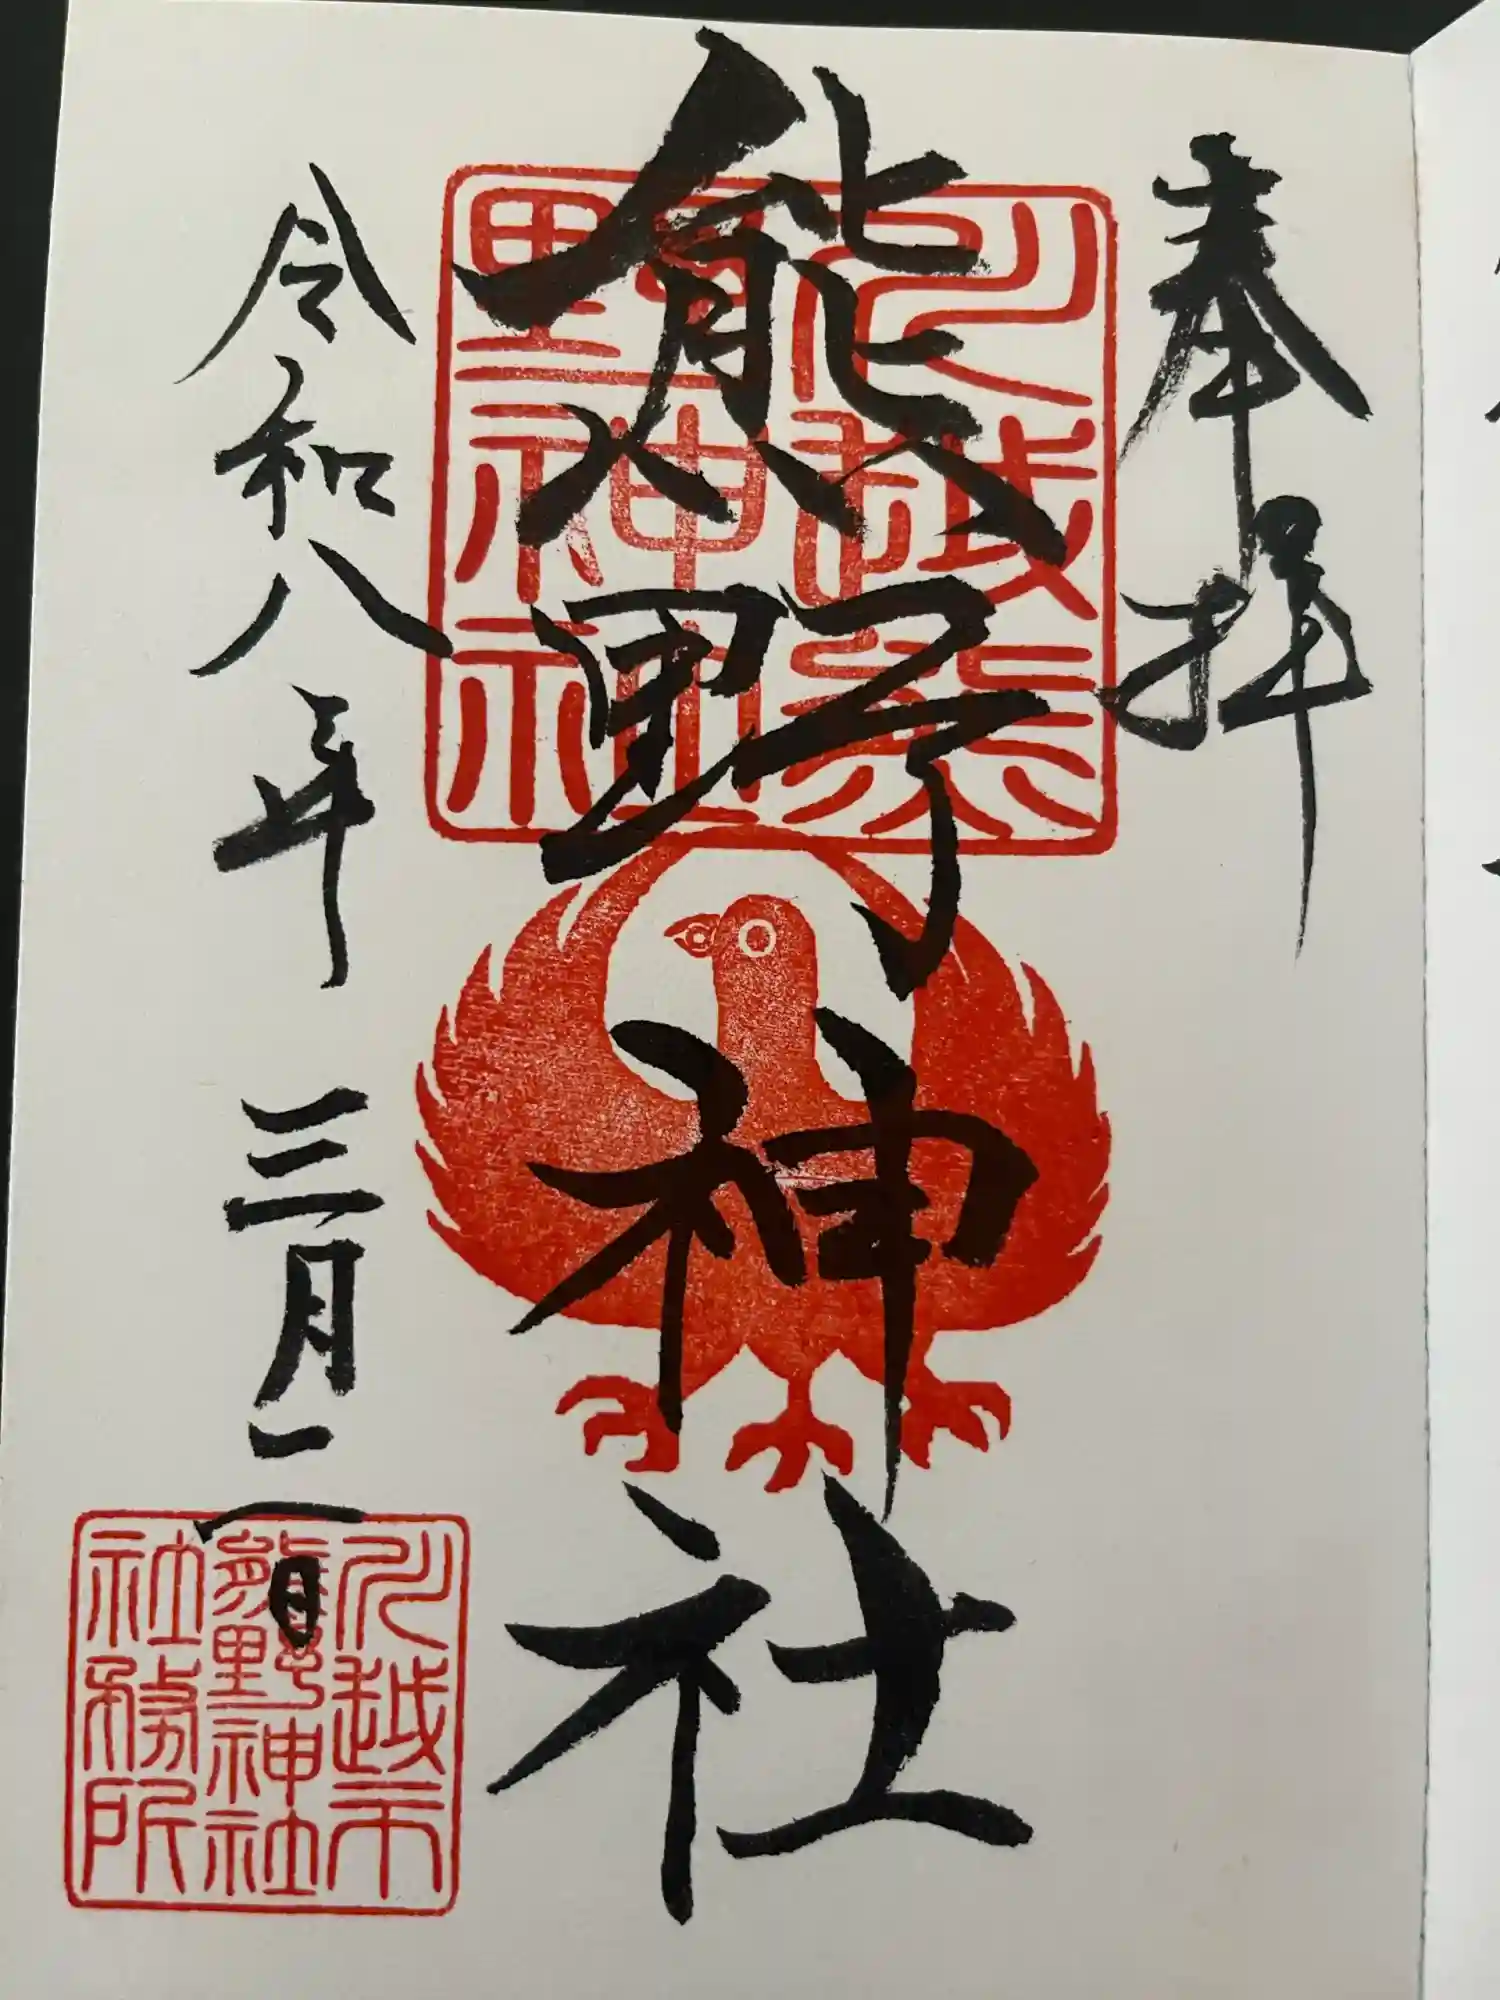 奉拝
熊野神社
川越熊
野神社
令和八年三月二日
川越市
熊野神社
社務所